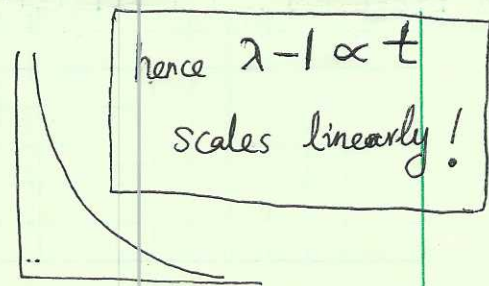 hence λ-1 ∝ t
scales linearly!